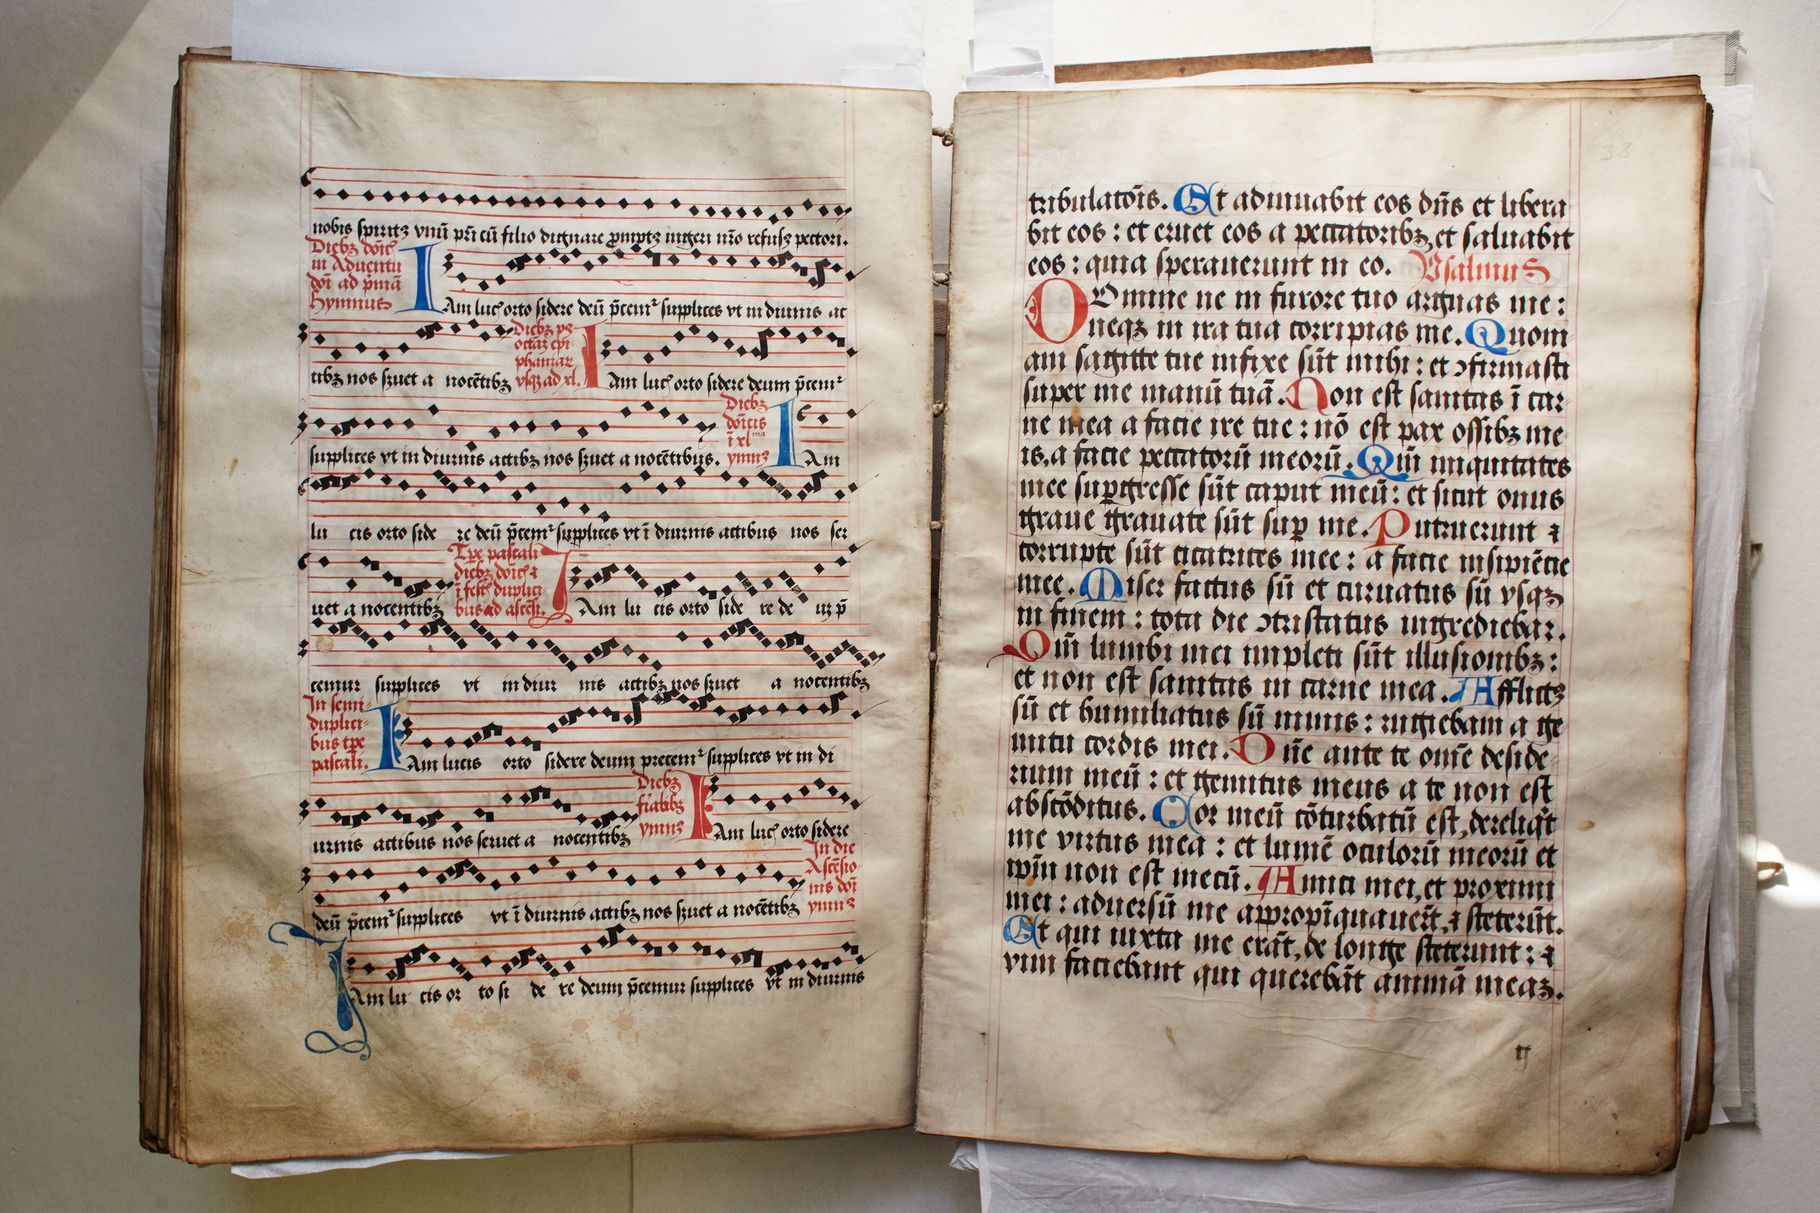 nobis spiritꝫ vnū pr̄i cū filio dignare ꝓmptꝫ ingeri nr̄o refusꝫ pectori.
Diebꝫ dōīcꝭ
in Aduentu
dōi ad p̄mā
hymnus
IAm lucꝭ orto sidere deū p̄cemꝛ supplices vt in diurnis ac
tibꝫ nos ẜuet a nocētibꝫ
Diebꝫ pꝰ
octaꝫ epi-
phaniaꝝ
vsqꝫ ad xl.
IAm lucꝭ orto sidere deum p̄cemꝛ
supplices vt in diurnis actibꝫ nos ẜuet a nocētibus.
Diebꝫ
dōīcis
ī xlᵐᵃ
ymnꝰ
IAm
lu cis orto side re deū p̄cemꝛ supplices vt ī diurnis actibus nos ser
uet a nocentibꝫ
Tp̄e pascali
diebꝫ dōīcꝭ ⁊
ī festꝭ dupli-
bus ad ascēs.
IAm lu cis orto side re de uꝫ p̄
cemur supplices vt in diur nis actibꝫ nos ẜuet a nocentibꝫ
In semi-
duplici-
bus tp̄e
pascali.
IAm lucis orto sidere deum precemꝛ supplices vt in di
urnis actibus nos seruet a nocentibꝫ
Diebꝫ
fīalibꝫ
ymnꝰ
IAm lucꝭ orto sidere
deū p̄cemꝛ supplices vt ī diurnis actibꝫ nos ẜuet a nocētibꝫ
In die
Ascēsio
nis dōi
ymnꝰ
IAm lu cis or to si de re deum p̄cemur supplices vt in diurnis
33
tribulatōis. Et adiuuabit eos dn̄s et libera
bit eos : et eruet eos a peccatoribꝫ, et saluabit
eos : quia sperauerunt in eo. Psalmus
DOmine ne in furore tuo arguas me :
neqꝫ in ira tua corripias me. Quoni
am sagitte tue infixe sūt mihi : et ꝯfirmasti
super me manū tuā. Non est sanitas ī car
ne mea a facie ire tue : nō est pax ossibꝫ me-
is, a facie peccatorū meorū. Qm̄ iniquitates
mee suꝑgresse sūt caput meū : et sicut onus
graue grauate sūt suꝑ me. Putruerunt ⁊
corrupte sūt cicatrices mee : a facie insipiētie
mee. Miser factus sū et curuatus sū vsqꝫ
in finem : tota die ꝯtristatus ingrediebar.
Qm̄ lumbi mei impleti sūt illusionibꝫ :
et non est sanitas in carne mea. Afflictꝰ
sū et humiliatus sū nimis : rugiebam a ge
mitu cordis mei. Dn̄e ante te om̄e deside-
rium meū : et gemitus meus a te non est
abscōditus. Cor meū cōturbatū est, dereliq̇t
me virtus mea : et lumē oculorū meorū et
ipm̄ non est mecū. Amici mei, et proximi
mei : aduersū me appropīquauerūt, ⁊ steterūt.
Et qui iuxta me erāt, de longe steterunt : ⁊
vim faciebant qui querebāt animā meaꝫ.